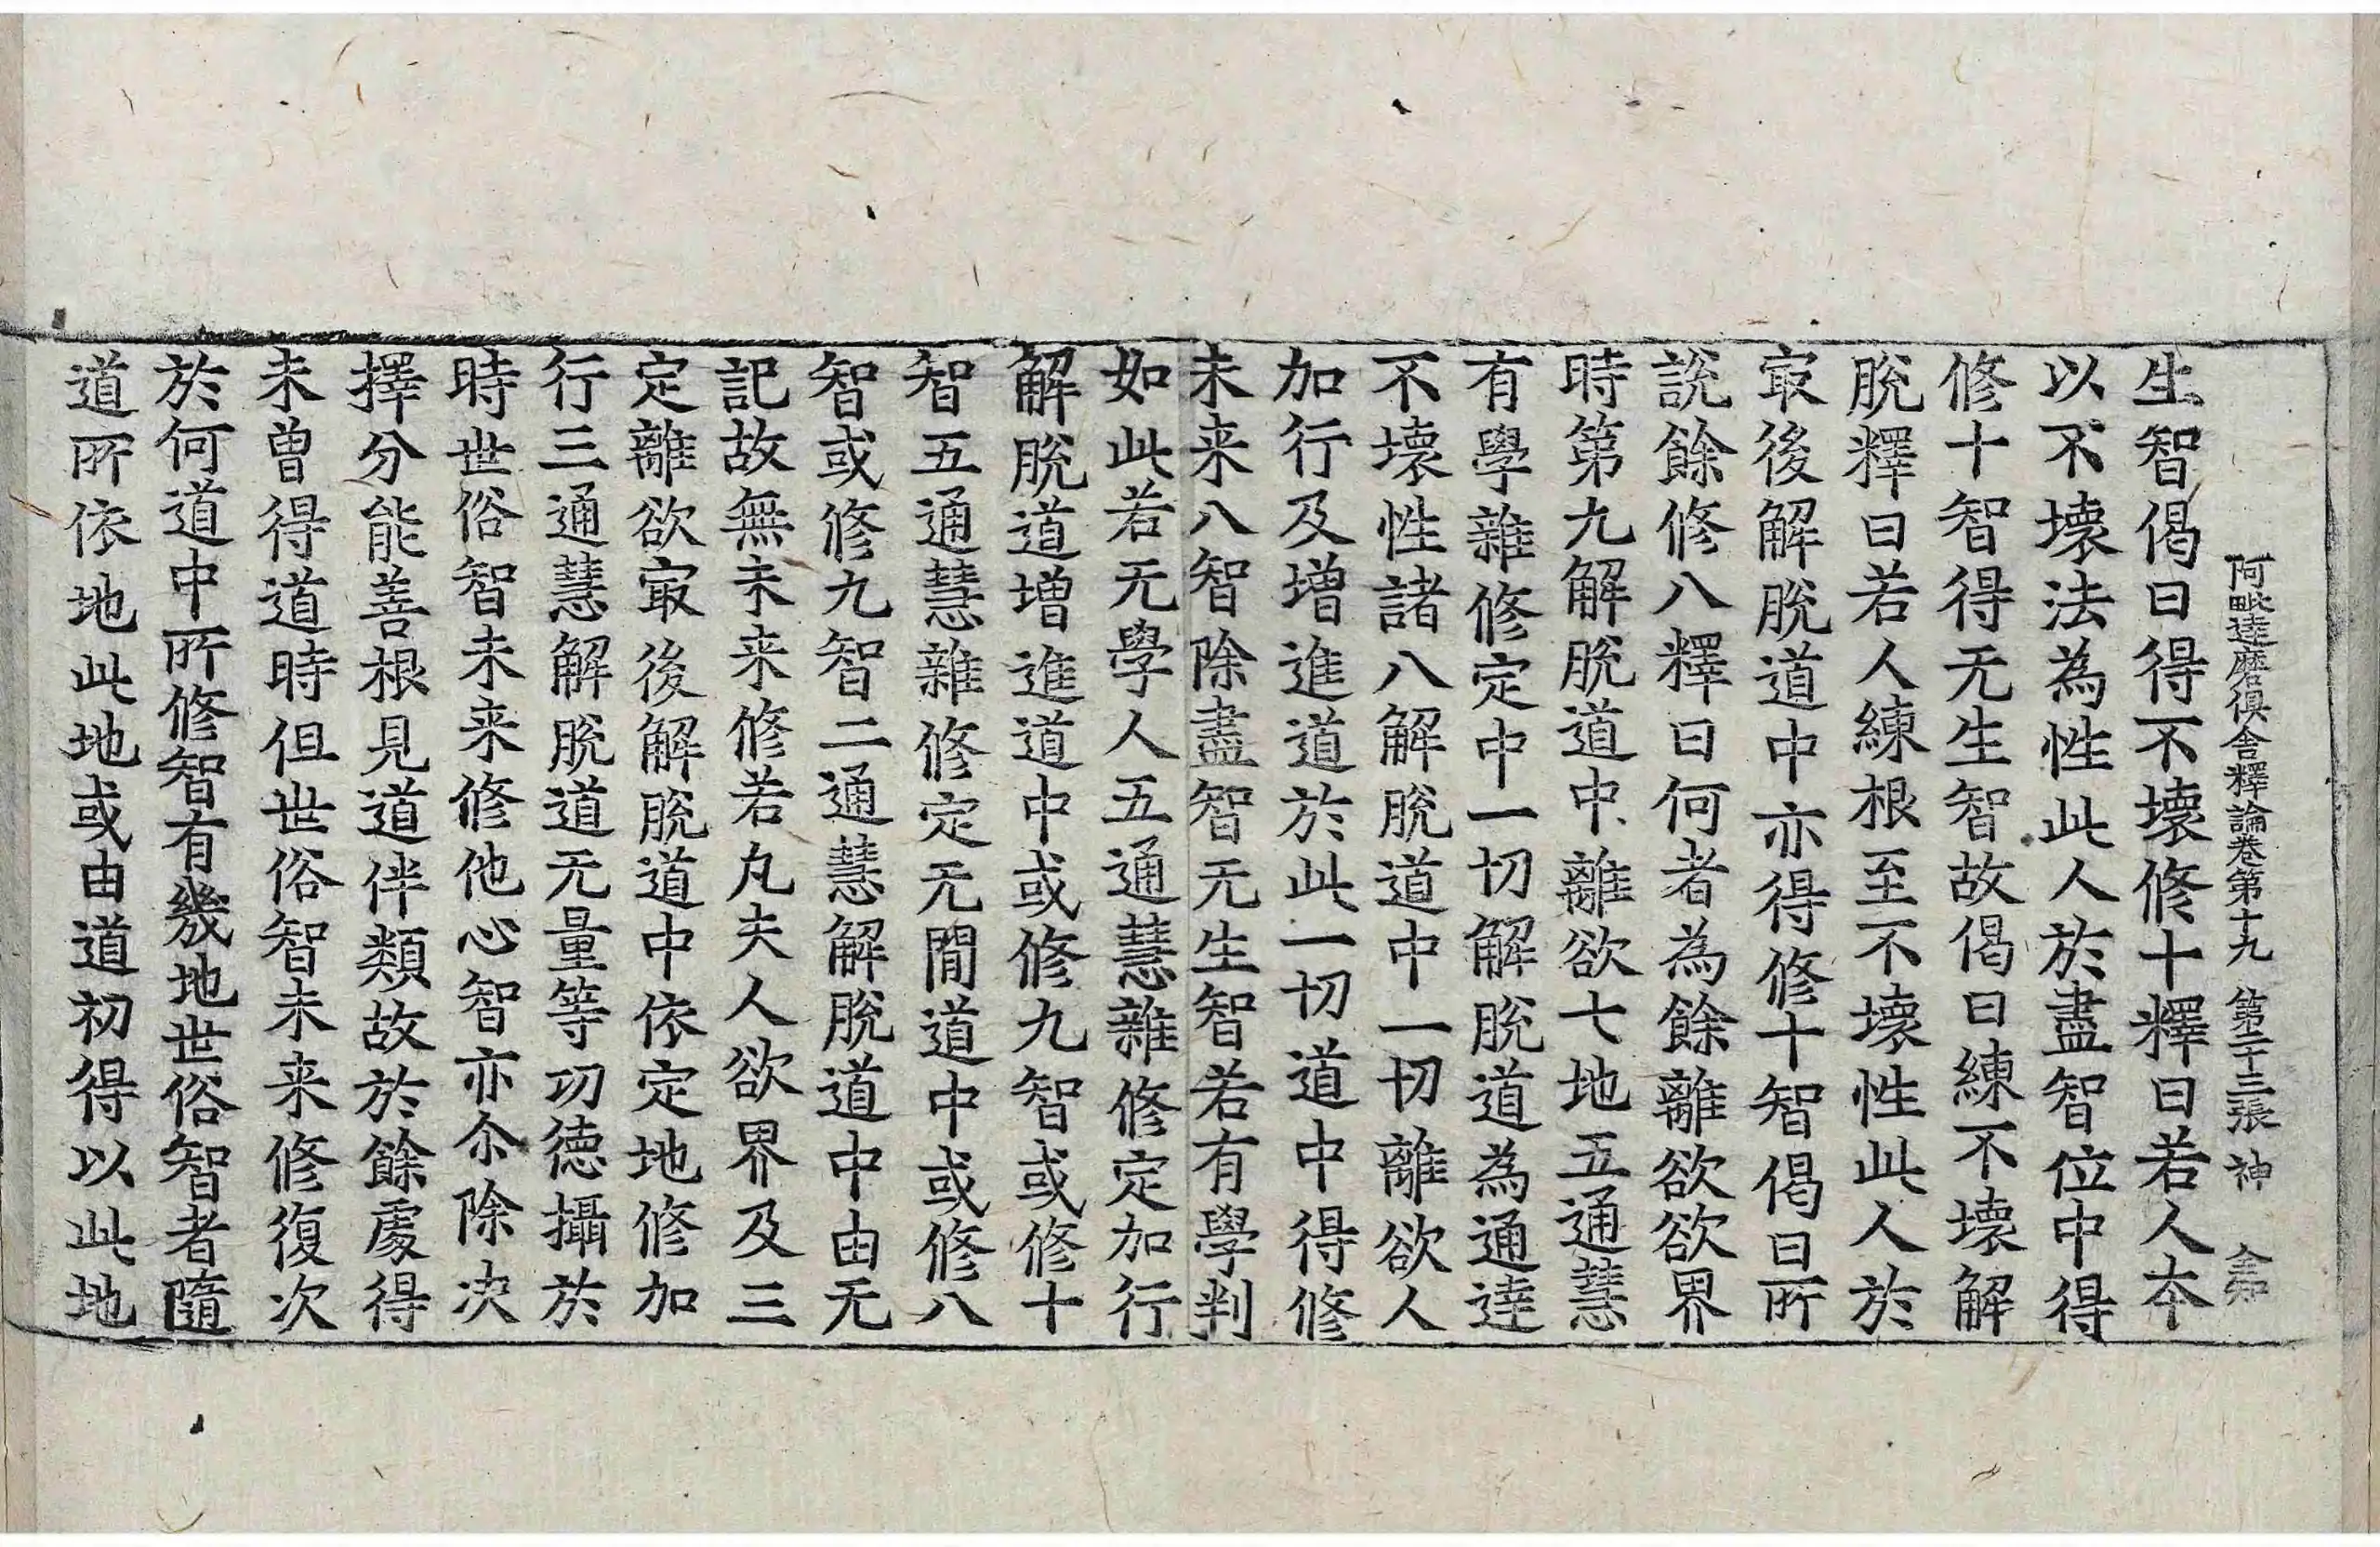 阿毗達磨俱舍釋論卷第十九 第二十三張 神
生智偈曰得不壞修十釋曰若人夲
以不壞法為性此人於盡智位中得
修十智得无生智故偈曰練不壞解
脫釋曰若人練根至不壞性此人於
㝡後解脫道中亦得修十智偈曰所
說餘修八釋曰何者為餘離欲欲界
時第九解脫道中離欲七地五通慧
有學雜修定中一切解脫道為通達
不壞性諸八解脫道中一切離欲人
加行及增進道於此一切道中得修
未来八智除盡智无生智若有學判
如此若无學人五通慧雜修定加行
解脫道增進道中或修九智或修十
智五通慧雜修定无閒道中或修八
智或修九智二通慧解脫道中由无
記故無未来修若凡夫人欲界及三
定離欲㝡後解脫道中依定地修加
行三通慧解脫道无量等功德攝於
時世俗智未来修他心智亦尒除决
擇分能善根見道伴類故於餘處得
未曾得道時但世俗智未来修復次
於何道中所修智有幾地世俗智者隨
道所依地此地或由道初得以此地